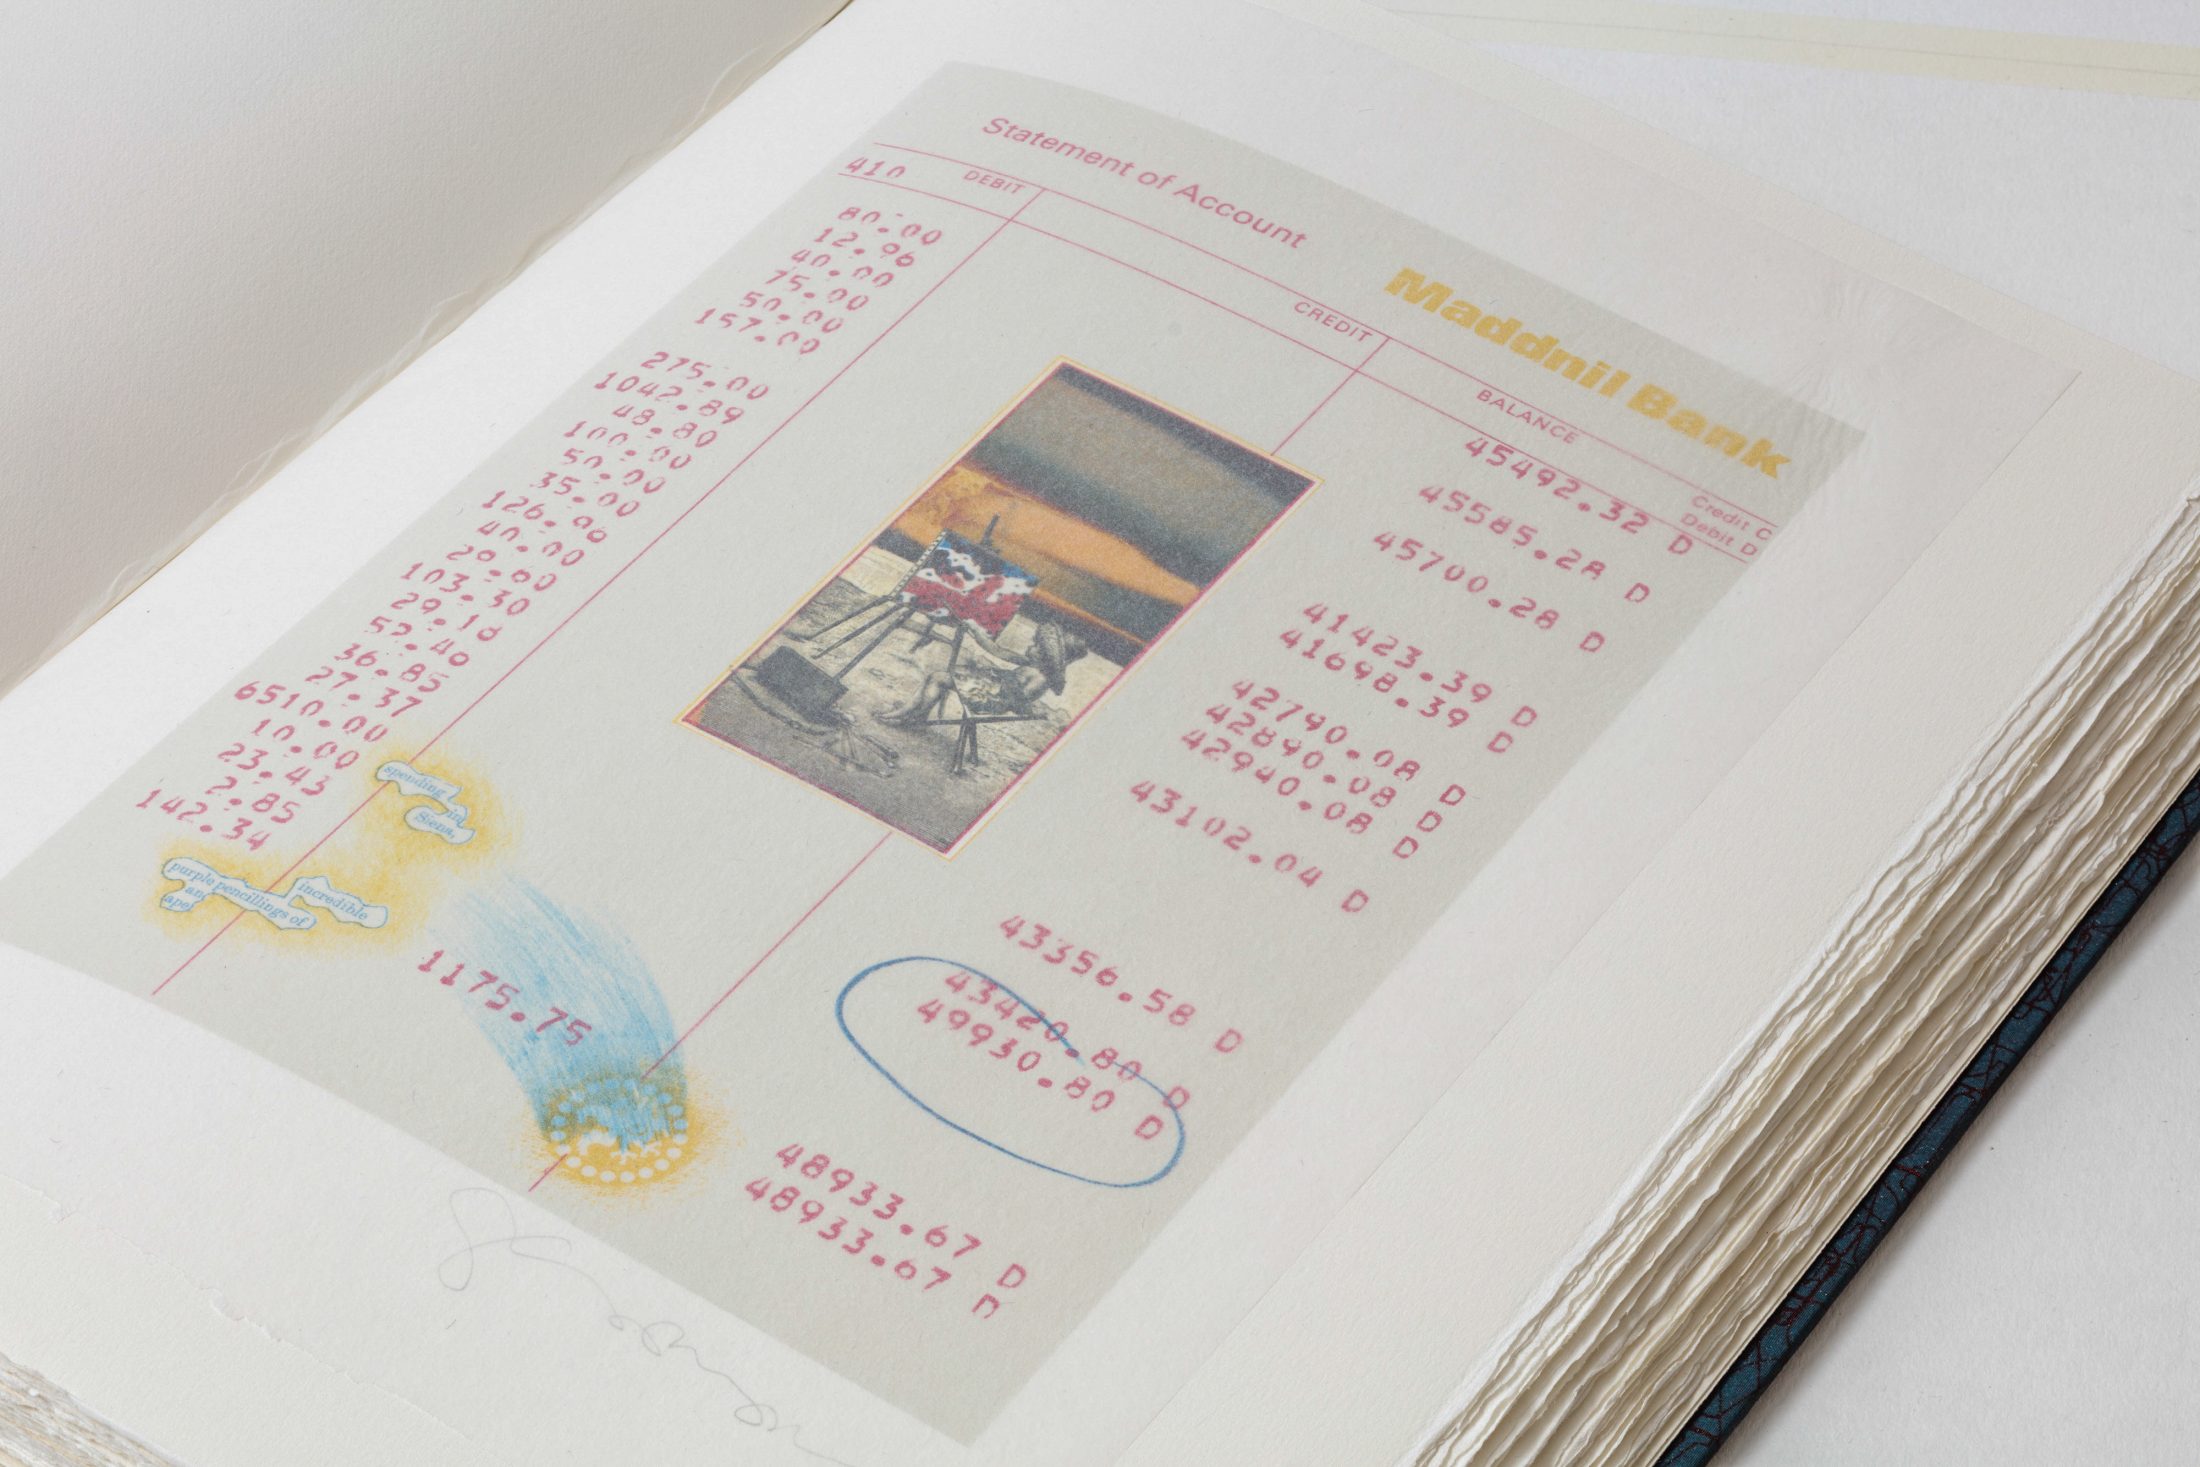 Statement of Account
Maddnil Bank
410 DEBIT CREDIT BALANCE Credit C
Debit D
45492.32 D
80.00
12.96 45585.28 D
40.00
75.00 45700.28 D
50.00
157.00 41423.39 D
275.00 41698.39 D
1042.89
48.80 42790.08 D
100.00 42890.08 D
50.00 42940.08 D
35.00
126.96 43102.04 D
40.00
20.00
103.30
29.18
52.40
36.85 43356.58 D
27.37 43420.80 D
6510.00 49930.80 D
10.00
23.43
2.85
142.34
1175.75 48933.67 D
48933.67 D
spending
in
Siena,
incredible
purple pencillings of
and
ape